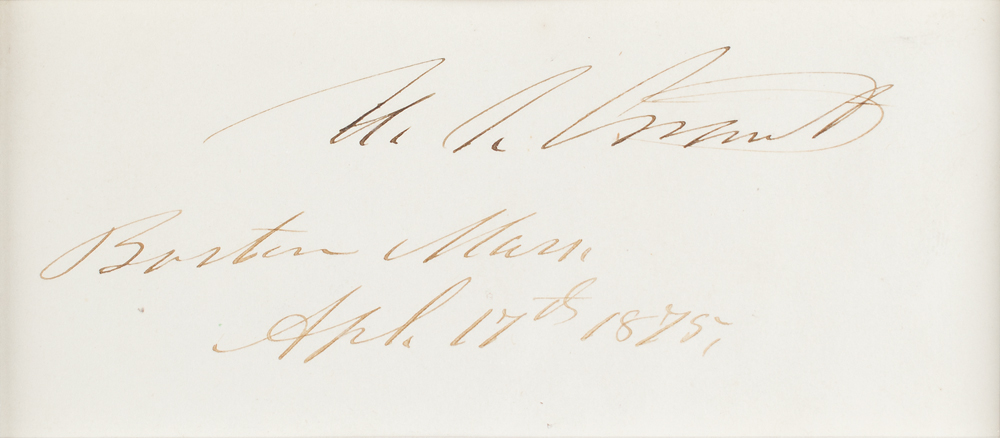 U. S. Grant
Boston Mass.
Apl. 17th 1875,